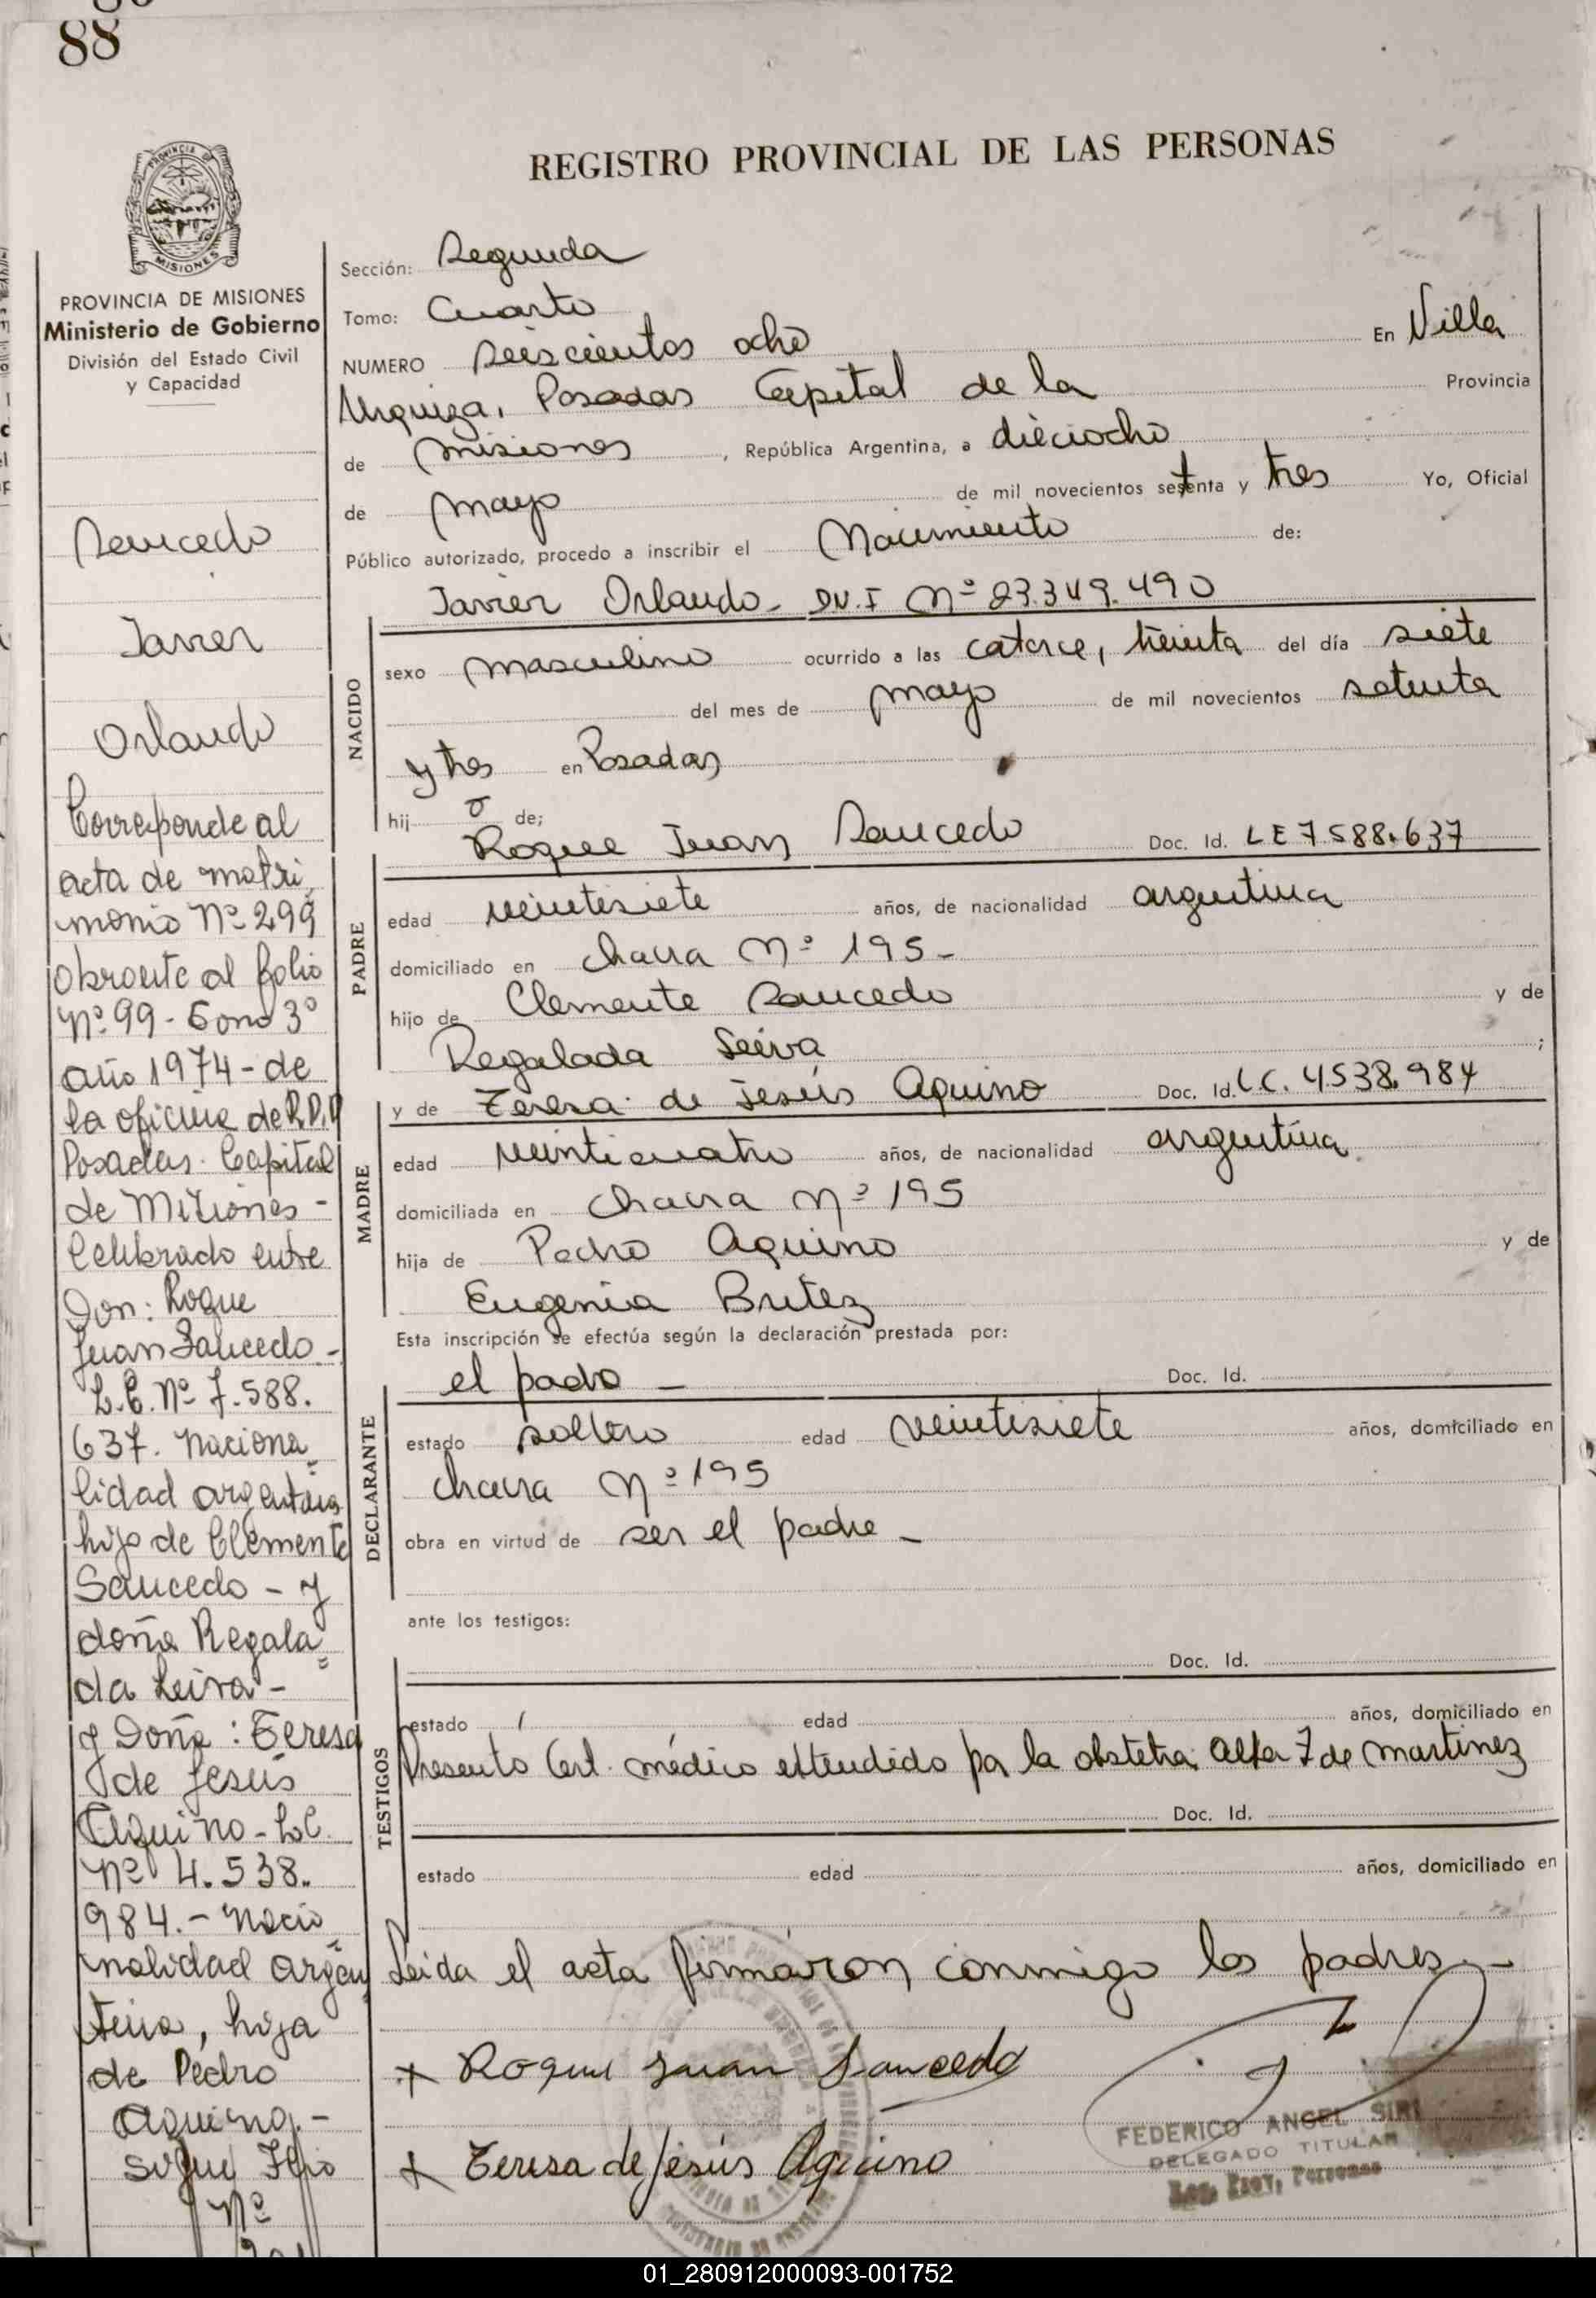 88
REGISTRO PROVINCIAL DE LAS PERSONAS
PROVINCIA DE MISIONES
Ministerio de Gobierno
División del Estado Civil
y Capacidad
Saucedo
Javier
Orlando
Corresponde al
acta de matri
monio Nº 299
obrante al folio
Nº 99 - Tomo 3º
año 1974 - de
la oficina de R.P.P
Posadas. Capital
de Misiones -
Celebrado entre
Don: Roque
Juan Saucedo -
L.E. Nº 7.588.
637. naciona
lidad argentina
hijo de Clemente
Saucedo - y
doña Regala
da Leiva -
y Doña: Teresa
de Jesús
Aquino - L.C.
Nº 4.538.
984. - nacio
nalidad argen
tina, hija
de Pedro
Aquino. -
Sigue Flio
Nº
Sección: Segunda
Tomo: Cuarto
NUMERO seiscientos ocho En Villa
Urquiza, Posadas Capital de la Provincia
de misiones, República Argentina, a dieciocho
de mayo de mil novecientos setenta y tres Yo, Oficial
Público autorizado, procedo a inscribir el Nacimiento de:
Javier Orlando - DN.I Nº 23.349.490
NACIDO
sexo masculino ocurrido a las catorce, treinta del día siete
del mes de mayo de mil novecientos setenta
y tres en Posadas
hijo de;
Roque Juan Saucedo Doc. Id. LE 7588.637
PADRE
edad veintisiete años, de nacionalidad argentina
domiciliado en chacra Nº 195 -
hijo de Clemente Saucedo y de
Regalada Leiva ;
y de Teresa de Jesús Aquino Doc. Id. L.C. 4.538.984
MADRE
edad veinticuatro años, de nacionalidad argentina
domiciliada en chacra Nº 195
hija de Pedro Aquino y de
Eugenia Britez
Esta inscripción se efectúa según la declaración prestada por:
el padre - Doc. Id.
DECLARANTE
estado soltero edad veintisiete años, domiciliado en
chacra Nº 195
obra en virtud de ser el padre -
ante los testigos:
Doc. Id.
TESTIGOS
estado edad años, domiciliado en
Presento Cert. médico extendido por la obstetra Alba Z de Martinez
Doc. Id.
estado edad años, domiciliado en
Leida el acta firmaron conmigo los padres. -
+ Roque Juan Saucedo
+ Teresa de Jesús Aquino
FEDERICO ANGEL SIRI
DELEGADO TITULAR
Reg. Prov. Personas
01_280912000093-001752